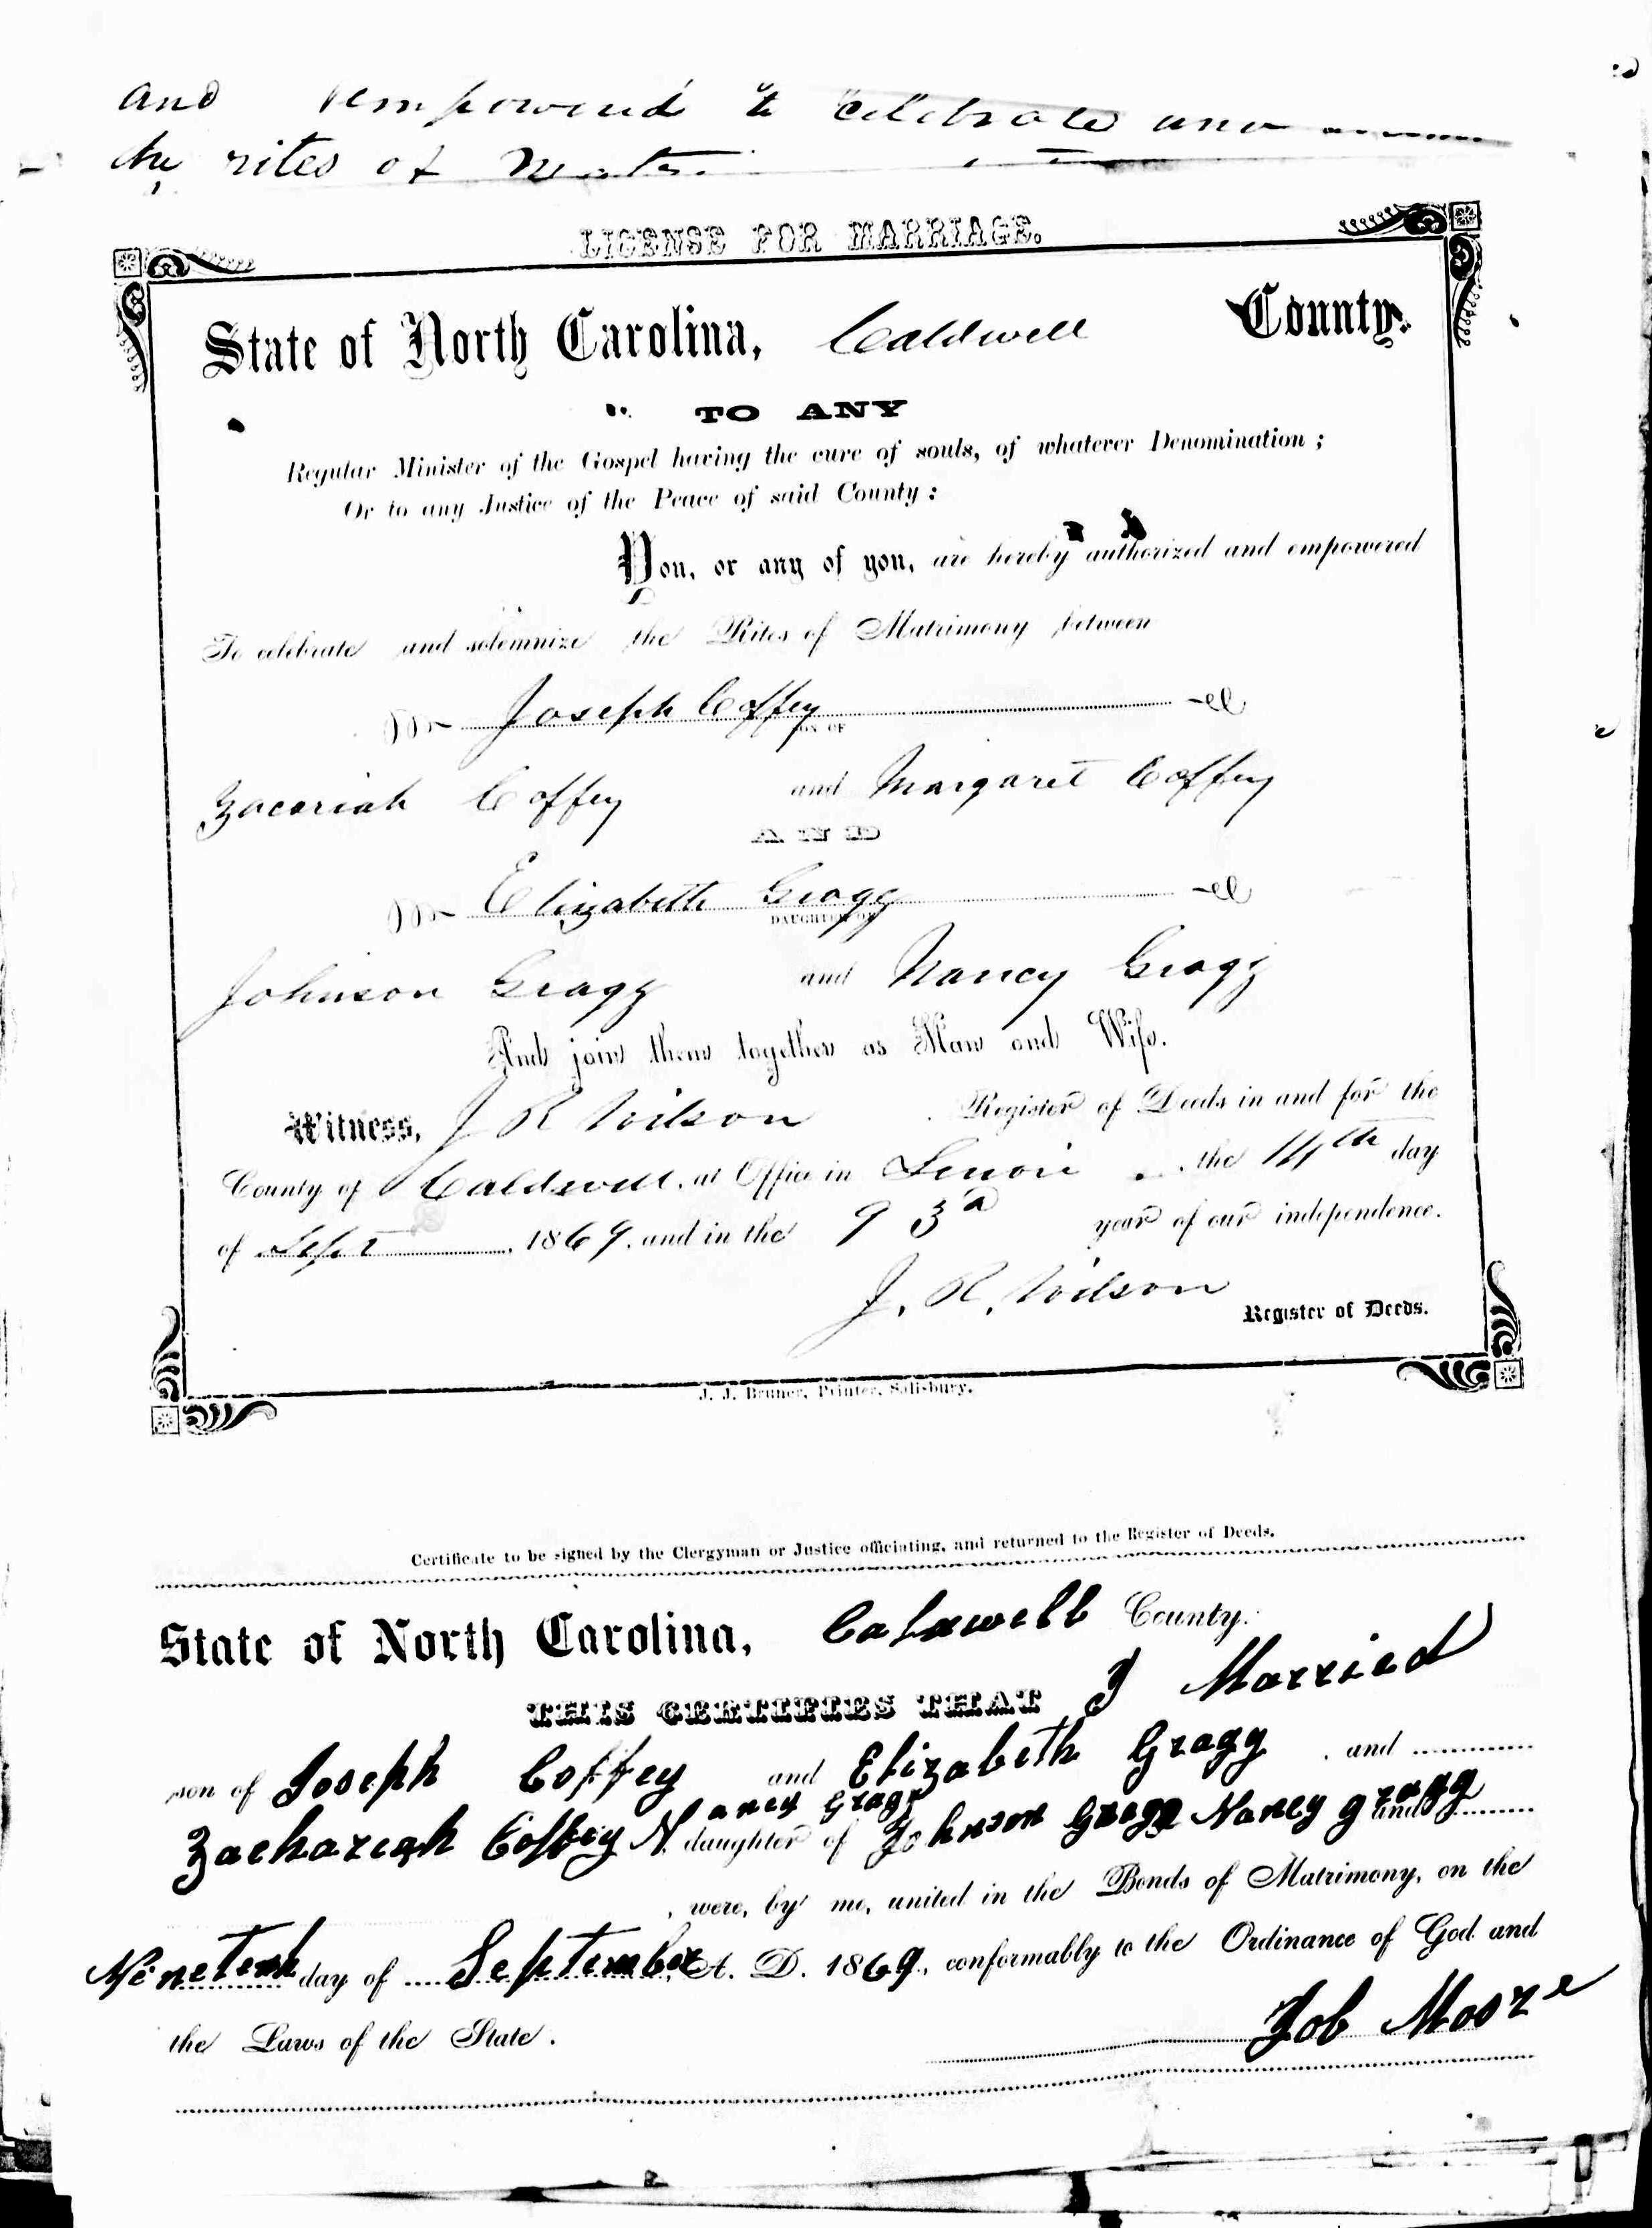 and empowered to celebrate and
the rites of
LICENSE FOR MARRIAGE.
State of North Carolina, Caldwell County.
TO ANY
Regular Minister of the Gospel having the cure of souls, of whatever Denomination;
Or to any Justice of the Peace of said County:
You, or any of you, are hereby authorized and empowered
To celebrate and solemnize the Rites of Matrimony between
Joseph Coffey
SON OF
Zacariah Coffey and Margaret Coffey
AND
Elizabeth Gragg
DAUGHTER OF
Johnson Gragg and Nancy Gragg
And join them together as Man and Wife.
Witness, J R Wilson Register of Deeds in and for the
County of Caldwell, at Office in Lenoir the 14th day
of Sept 1869, and in the 93d year of our independence.
J. R. Wilson Register of Deeds.
J. J. Bruner, Printer, Salisbury.
Certificate to be signed by the Clergyman or Justice officiating, and returned to the Register of Deeds.
State of North Carolina, Calawell County.
THIS CERTIFIES THAT I Married
son of Joseph Coffey and Elizabeth Gragg and
ancy Gragg
Zachariah Coffey N daughter of Johnson Gragg Nancy gragg and
, were, by me, united in the Bonds of Matrimony, on the
Ninetenh day of September A. D. 1869, conformably to the Ordinance of God and
the Laws of the State. Job Moore